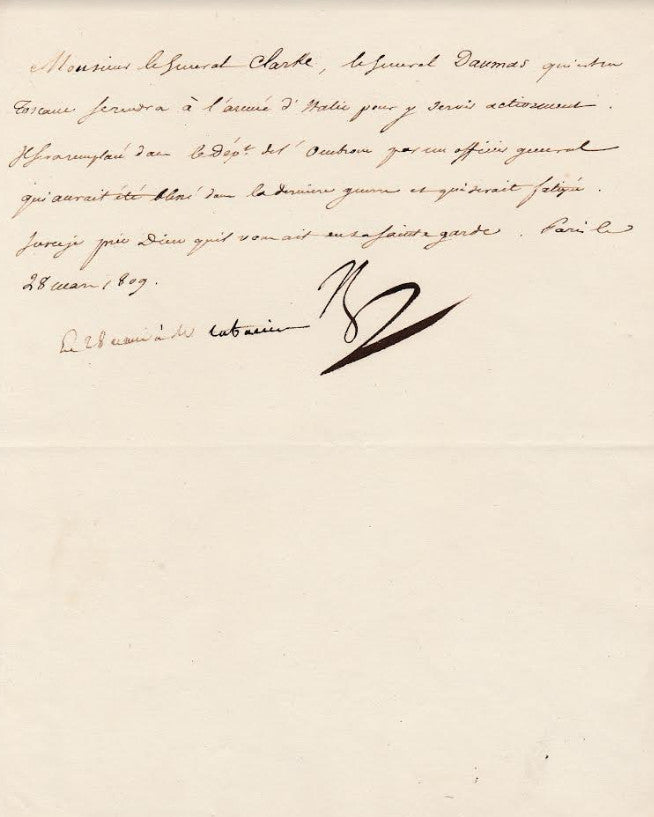 Monsieur le General Clarke, le General Daumas qui est en
Toscane se rendra à l'armée d'Italie pour y servir activement.
Il sera remplacé dans le Dépt de l'Ombrone par un officier general
qui aurait été blessé dans la derniere guerre et qui serait fatigué.
Sur ce je prie Dieu qu'il vous ait en sa sainte garde. Paris le
28 mars 1809.
Le 28 mars à Mr